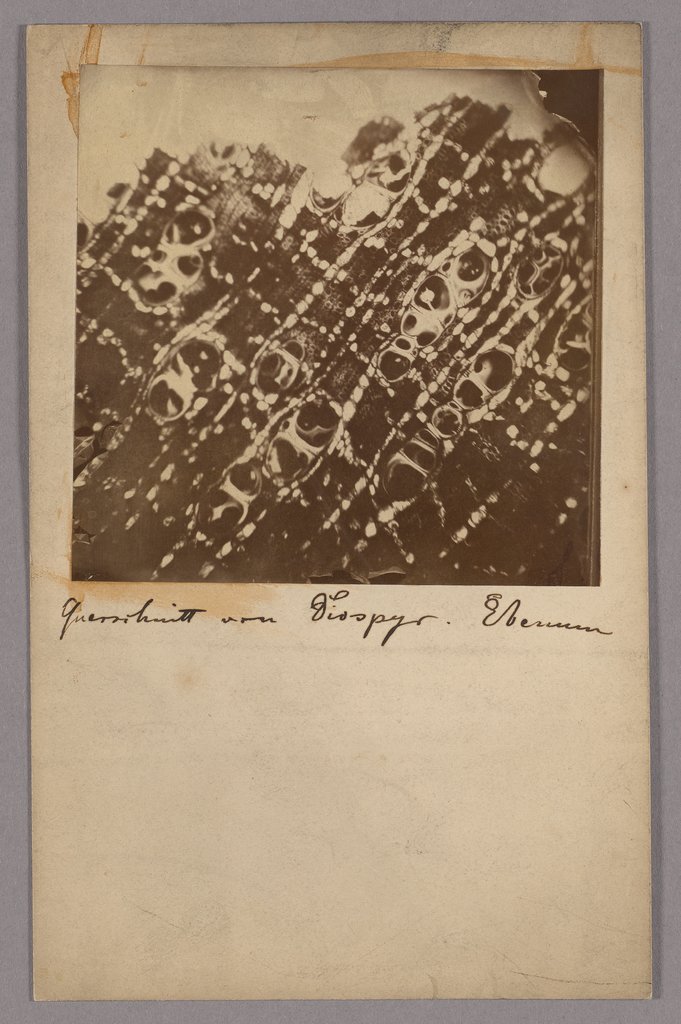 Querschnitt von Diospyr. Ebenum